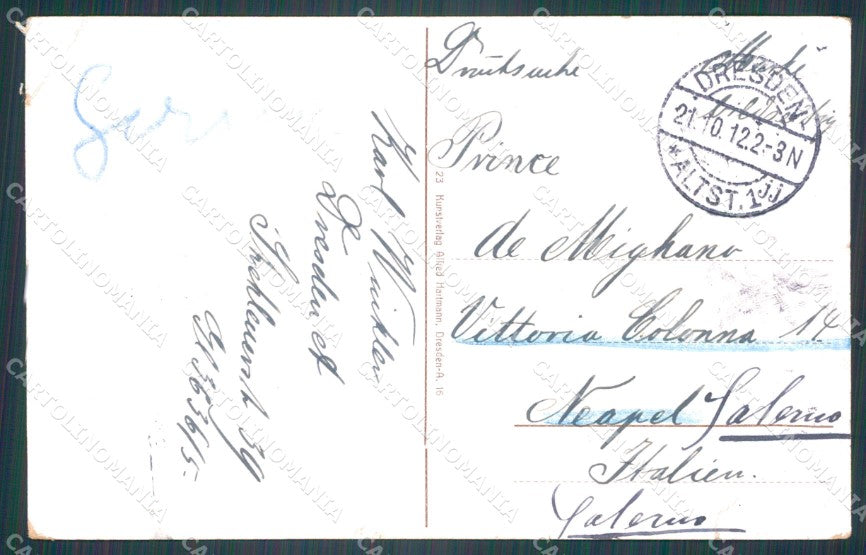 Karl Winkler
Dresden
23 Kunstverlag Alfred Hartmann, Dresden-A. 16
Drucksache
DRESDEN-
21.10.12.2-3N
*ALTST.1jj
Prince
de Mighano
Vittoria Colonna 14
Neapel Salerno
Italien.
Salerno
CARTOLINOMANIA